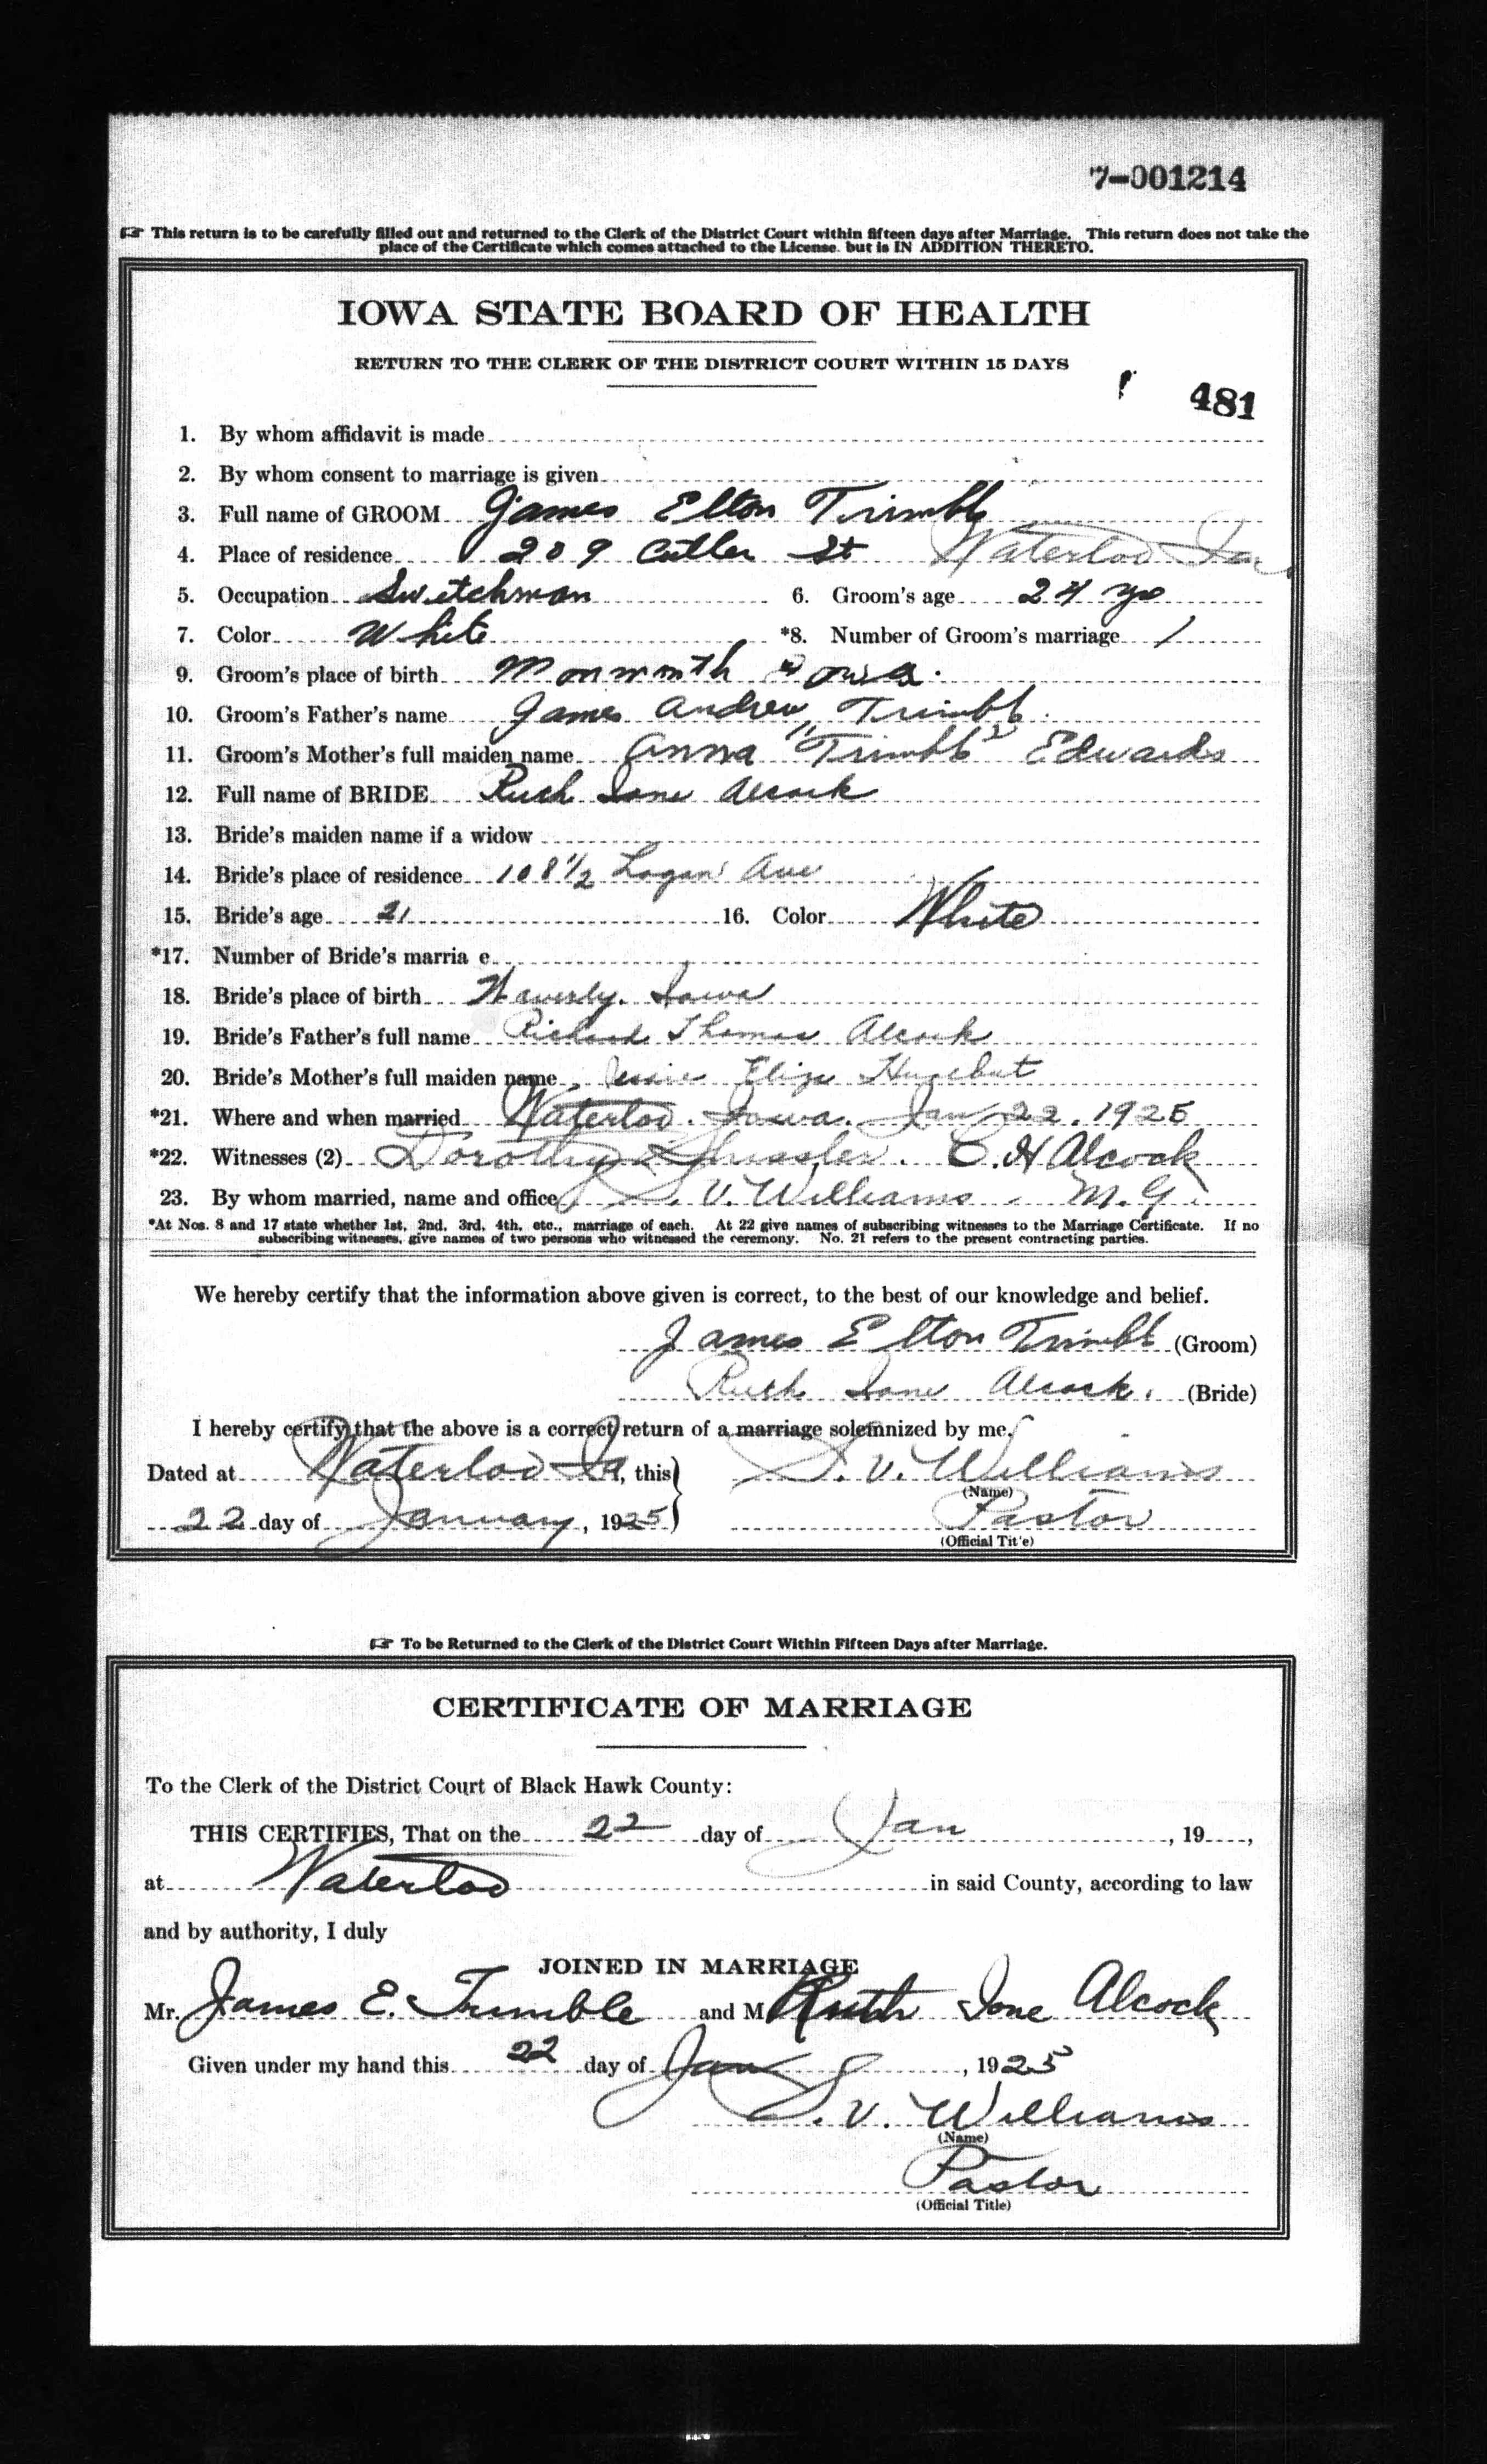 7-001214
☞ This return is to be carefully filled out and returned to the Clerk of the District Court within fifteen days after Marriage. This return does not take the
place of the Certificate which comes attached to the License. but is IN ADDITION THERETO.
IOWA STATE BOARD OF HEALTH
RETURN TO THE CLERK OF THE DISTRICT COURT WITHIN 15 DAYS
481
1. By whom affidavit is made
2. By whom consent to marriage is given
3. Full name of GROOM James Elton Trimble
4. Place of residence 209 Cutler St Waterloo Iowa
5. Occupation Switchman 6. Groom's age 24 yrs
7. Color White *8. Number of Groom's marriage 1
9. Groom's place of birth Monmouth Iowa.
10. Groom's Father's name James Andrew Trimble.
11. Groom's Mother's full maiden name Anna "Trimble" Edwards
12. Full name of BRIDE Ruth Ione Alcock
13. Bride's maiden name if a widow
14. Bride's place of residence 108 1/2 Logan Ave
15. Bride's age 21 16. Color White
*17. Number of Bride's marria e
18. Bride's place of birth Waverly. Iowa
19. Bride's Father's full name Richard Thomas Alcock
20. Bride's Mother's full maiden name Jessie Eliza
*21. Where and when married Waterloo. Iowa. Jan 22. 1925
*22. Witnesses (2) Dorothy C. H Alcock
23. By whom married, name and office S. V. Williams. M. G.
*At Nos. 8 and 17 state whether 1st, 2nd, 3rd, 4th, etc., marriage of each. At 22 give names of subscribing witnesses to the Marriage Certificate. If no
subscribing witnesses, give names of two persons who witnessed the ceremony. No. 21 refers to the present contracting parties.
We hereby certify that the information above given is correct, to the best of our knowledge and belief.
James Elton Trimble (Groom)
Ruth Ione Alcock. (Bride)
I hereby certify that the above is a correct return of a marriage solemnized by me.
Dated at Waterloo Ia, this S. V. Williams
(Name)
22 day of January, 1925 Pastor
(Official Tit'e)
☞ To be Returned to the Clerk of the District Court Within Fifteen Days after Marriage.
CERTIFICATE OF MARRIAGE
To the Clerk of the District Court of Black Hawk County:
THIS CERTIFIES, That on the 22 day of Jan, 19 ,
at Waterloo in said County, according to law
and by authority, I duly
JOINED IN MARRIAGE
Mr. James E. Trimble and M Ruth Ione Alcock
Given under my hand this 22 day of Jan, 1925
S. V. Williams
(Name)
Pastor
(Official Title)